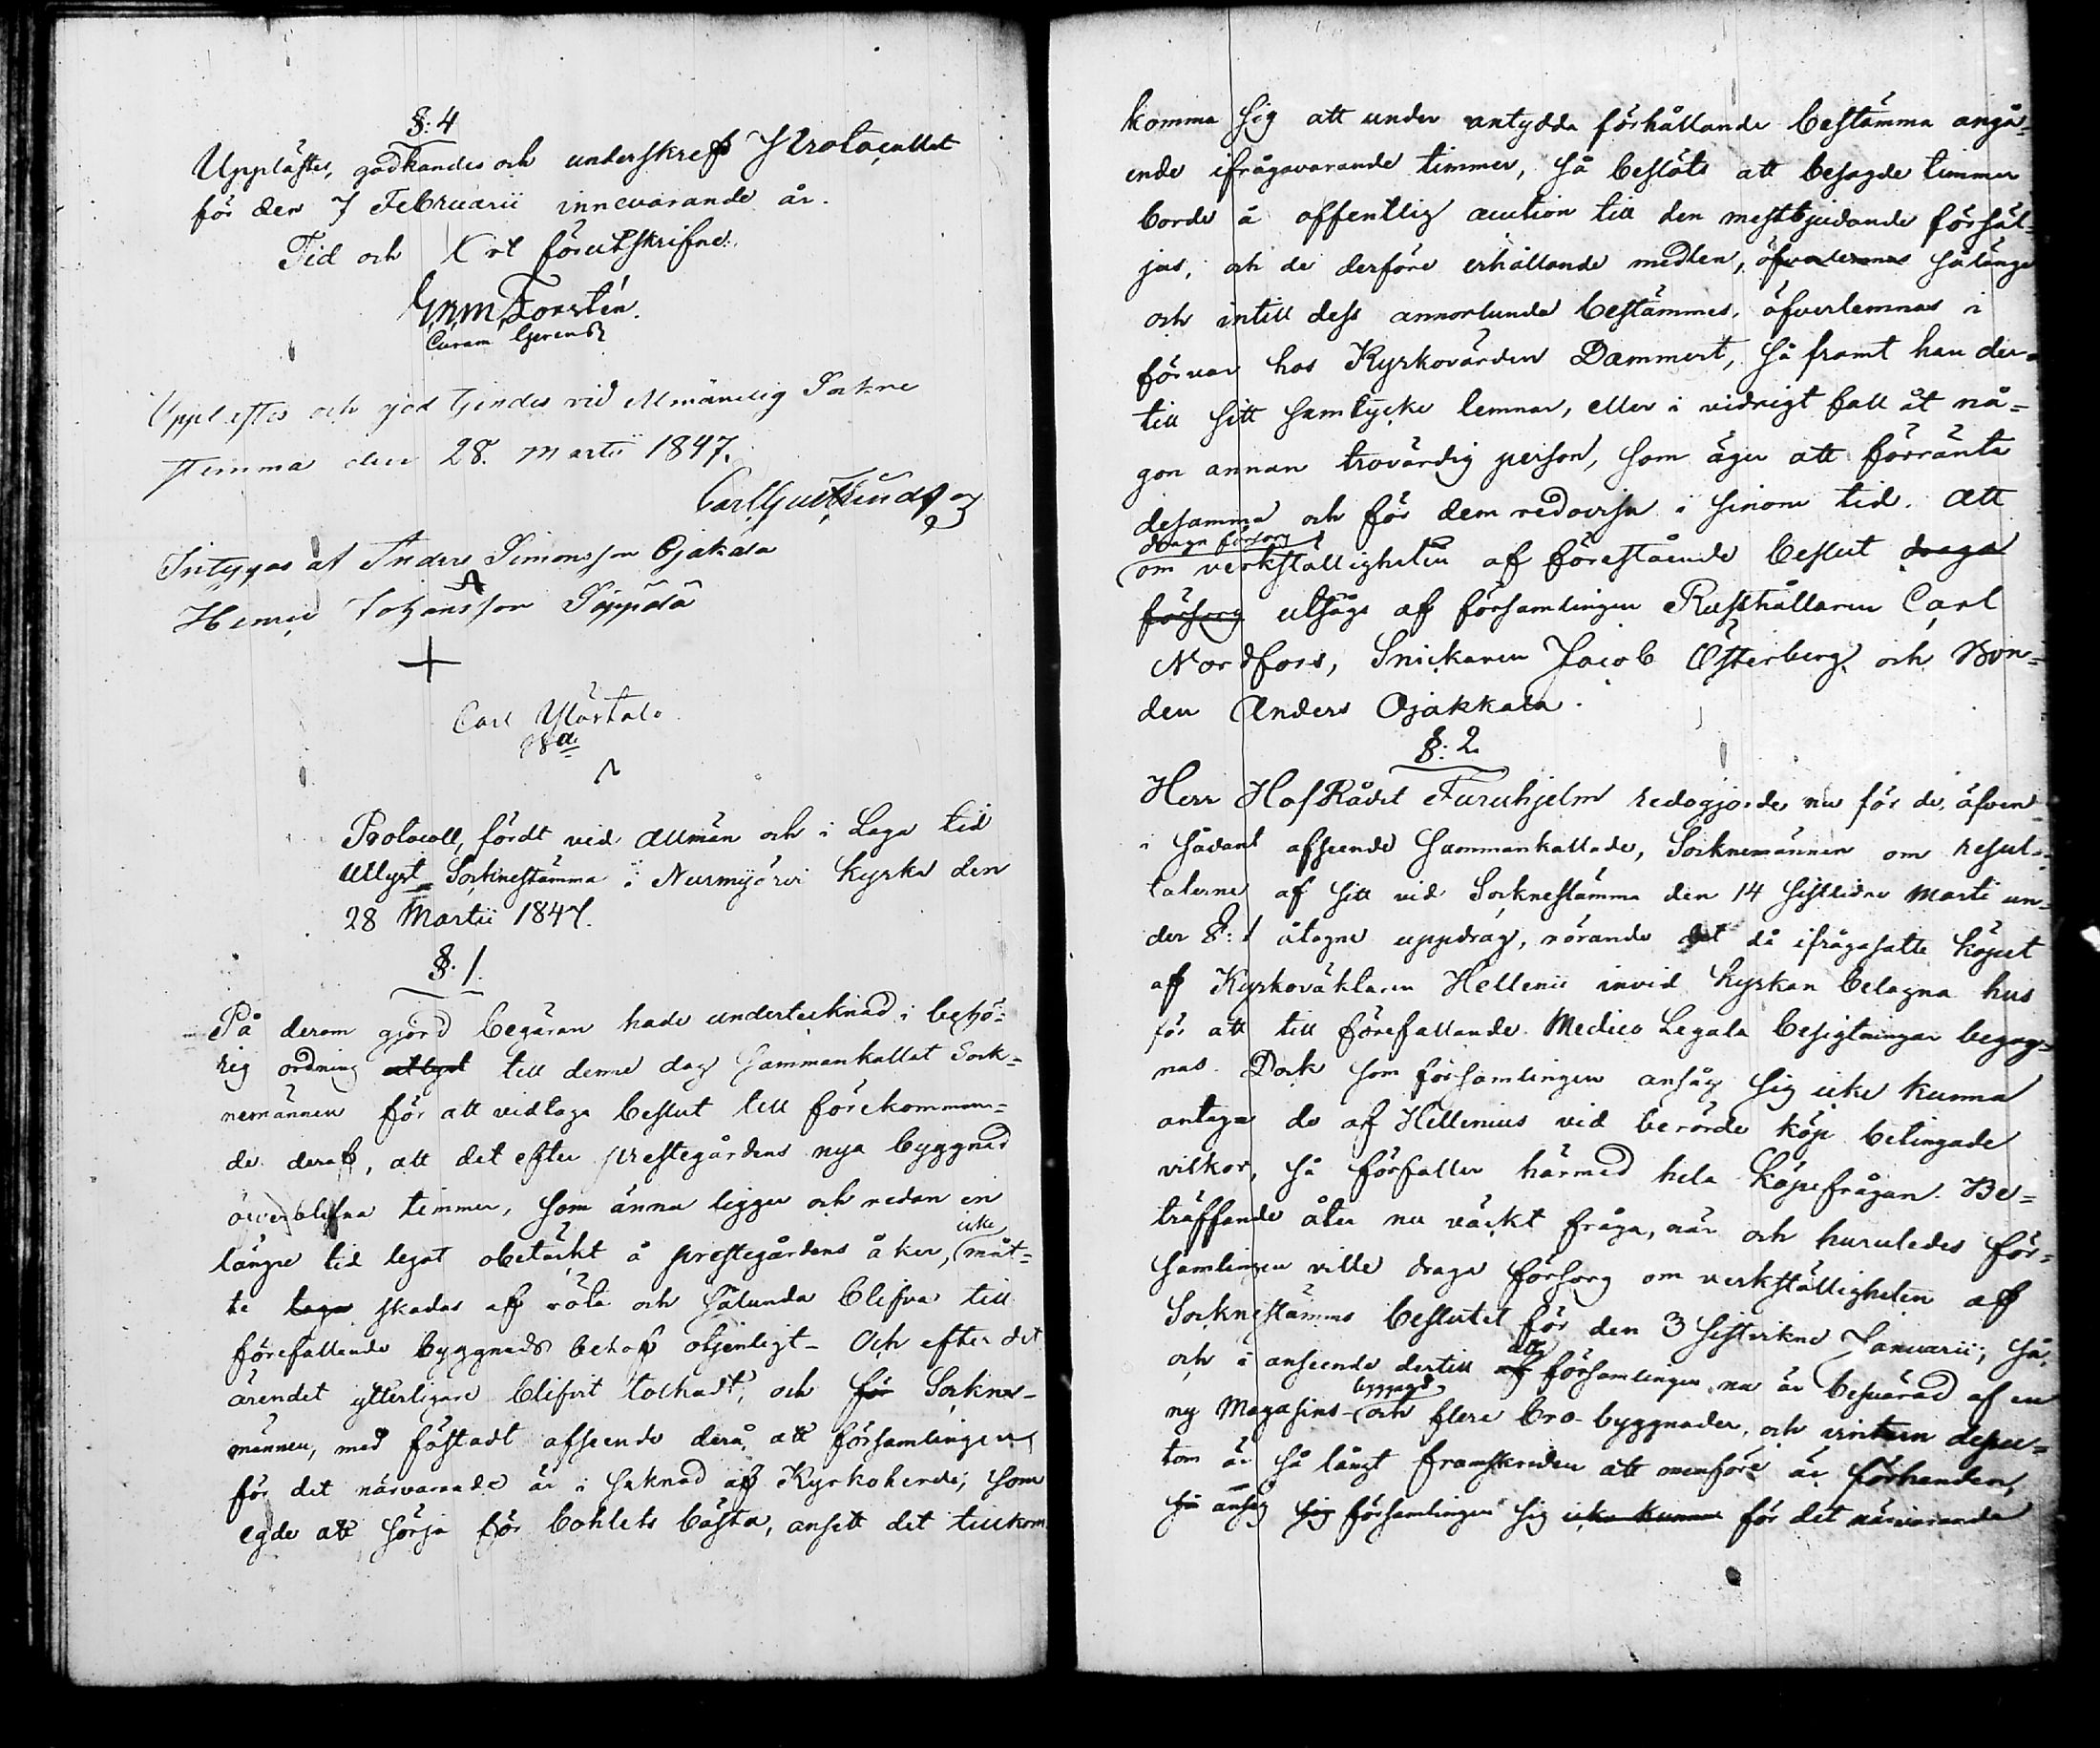 §: 4
Upplästes, godkändes och underskrefs Protocollet
för den 7 Februarii innevarande år.
Tid och Ort förutskrifne:
Grm Forstén.
Curam Gerens
Upplästes och godkändes vid Allmännelig Sockne
stemma den 28. Martii 1847.
Carl Gust Lind
Intygas af Anders Simonsson Ojakala
Henric Johansson Seppälä
Carl Ylärtalo
Protocoll, fördt vid allmän och i Laga tid
utlyst Socknestämma i Nurmijärvi kyrka den
28 Martii 1847.
§. 1.
På derom gjord begäran hade undertecknad i behö-
rig ordning utlyst till denne dag sammankallat Sock-
nemännen för att vidtaga beslut till förekomman-
de deraf, att det efter prestegårdens nya byggnad
öfverblifna timmer, som ännu ligger och redan en
längre tid legat obetäckt å prestegårdens åker, icke måt-
te taga skadas af röta och sålunda blifva till
förefallande byggnads behof otjenligt. Och efter det
ärendet ytterligare blifvit tolkadt, och för Sockne-
männen, med fästadt afseende derå att församlingen
för det närvarande är i saknad af Kyrkoherde, som
egde att sörja för bohlets bästa, ansett det tillkom
komma sig att under antydda förhållande bestämma angå-
ende ifrågavarande timmer, så beslöts att besagde timmer
borde å offentlig auction till den mestbjudande försäl-
jas, och de derföre erhållande medlen, öfverlemnas sålänge
och intill dess annorlunda bestämmes, öfverlemnas i
förvar hos Kyrkovärden Dammert, så framt han der-
till sitt samtycke lemnar, eller i vidrigt fall åt nå-
gon annan trovärdig person, som äger att förränta
desamma och för dem redovisa i sinom tid. Att
draga försorg
om verkställigheten af förestående beslut draga
försorg utsågs af församlingen Rusthållaren Carl
Nordfors, Snickaren Jacob Österberg och Bon-
den Anders Ojakkala.
§: 2.
Herr HofRådet Furuhjelm redogjorde nu för de, äfven
i sådant afseende sammankallade, Socknemännen om resul-
taterne af sitt vid Socknestämma den 14 sistlidne Marti un-
der §: 1 åtagne uppdrag, rörande det då ifrågasatte köpet
af Kyrkoväktaren Hellenii invid kyrkan belagna hus
för att till förefallande Medico Legala besigtningar begag-
nas. Dock som församlingen ansåg sig icke kunna
antaga de af Hellenius vid berörde köp betingade
vilkor, så förfaller härmed hela köpefrågan. Be-
träffande åter nu väckt fråga, när och huruledes för-
samlingen ville draga försorg om verkställigheten af
Sockneftämmo beslutet för den 3 sistvikne Januarii, så,
och i anseende dertill af att församlingen nu är besvärad af en
ny Magasins- byggnad och flere bro-byggnader, och vintern dessu-
tom är så långt framskriden att menföre är förhanden,
så ansåg sig församlingen sig icke kunna för det närvarande